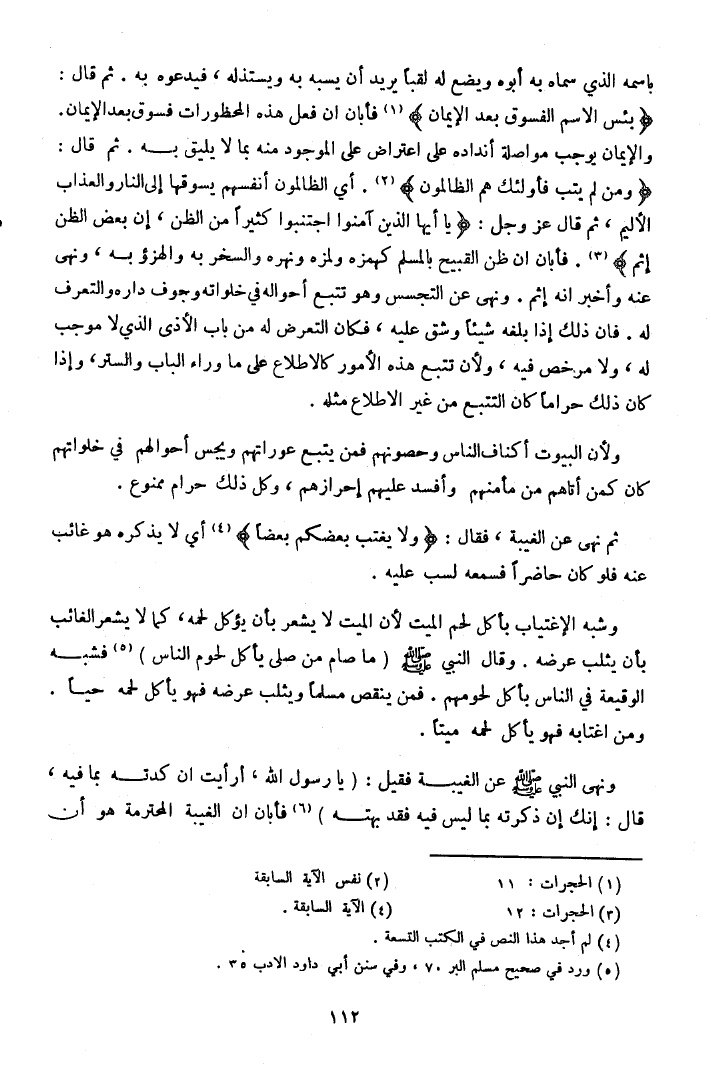 باسمه الذي سماه به أبوه ويضع له لقباً يريد أن يسبه به ويستذله ، فيدعوه به . ثم قال :
﴿ بئس الاسم الفسوق بعد الإيمان ﴾ (١) فأبان ان فعل هذه المحظورات فسوق بعد الإيمان.
والإيمان يوجب مواصلة أنداده على اعتراض على الموجود منه بما لا يليق بـــه . ثم قال :
﴿ ومن لم يتب فأولئك هم الظالمون ﴾ (٢) . أي الظالمون أنفسهم يسوقها إلى النار والعذاب
الأليم ، ثم قال عز وجل : ﴿ يا أيها الذين آمنوا اجتنبوا كثيراً من الظن ، إن بعض الظن
إثم ﴾ (٣) . فأبان ان ظن القبيح بالمسلم كهمزه ولمزه ونهره والسخر به والهزؤ بــه ، ونهى
عنه وأخبر انه إثم . ونهى عن التجسس وهو تتبع أحواله في خلواته وجوف داره والتعرف
له . فان ذلك إذا بلغه شيئاً وشق عليه ، فكان التعرض له من باب الأذى الذي لا موجب
له ، ولا مرخص فيه ، ولأن تتبع هذه الأمور كالاطلاع على ما وراء الباب والستر، وإذا
كان ذلك حراماً كان التتبع من غير الاطلاع مثله .
ولأن البيوت أكناف الناس وحصونهم فمن يتبع عوراتهم ويجس أحوالهم في خلواتهم
كان كمن أتاهم من مأمنهم وأفسد عليهم إحرازهم ، وكل ذلك حرام ممنوع .
ثم نهى عن الغيبة ، فقال : ﴿ ولا يغتب بعضكم بعضاً ﴾ (٤) أي لا يذكره هو غائب
عنه فلو كان حاضراً فسمعه لسب عليه .
وشبه الإغتياب بأكل لحم الميت لأن الميت لا يشعر بأن يؤكل لحمه، كما لا يشعر الغائب
بأن يثلب عرضه . وقال النبي ﷺ ( ما صام من صلى يأكل لحوم الناس ) (٥) فشبـــه
الوقيعة في الناس بأكل لحومهم . فمن ينقص مسلماً ويثلب عرضه فهو يأكل لحمه حيــاً .
ومن اغتابه فهو يأكل لحمه ميتاً .
ونهى النبي ﷺ عن الغيبـــة فقيل : ( يا رسول الله ، أرأيت ان كدتـــه بما فيه ،
قال : إنك إن ذكرته بما ليس فيه فقد بهتـــه ) (٦) فأبان ان الغيبة المحترمة هو أن
(١) الحجرات : ١١ (٢) نفس الآية السابقة
(٣) الحجرات : ١٢ (٤) الآية السابقة .
(٤) لم أجد هذا النص في الكتب التسعة .
(٥) ورد في صحيح مسلم البر ٧٠ ، وفي سنن أبي داود الادب ٣٥ .
١١٢